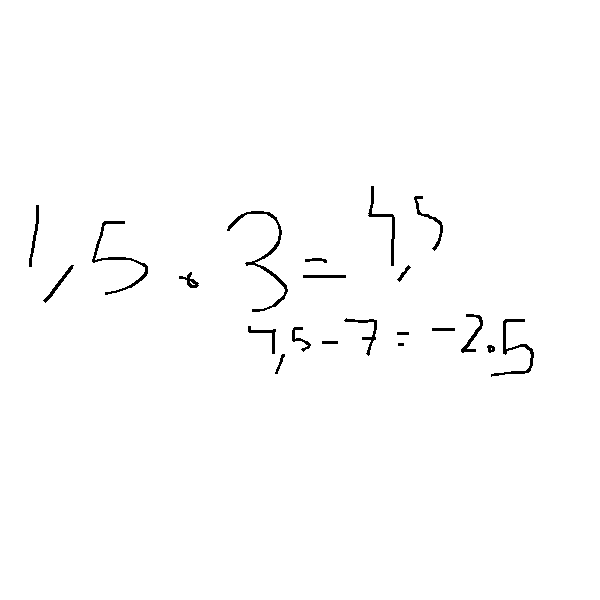 1,5 · 3 = 4,5
4,5 - 7 = -2.5